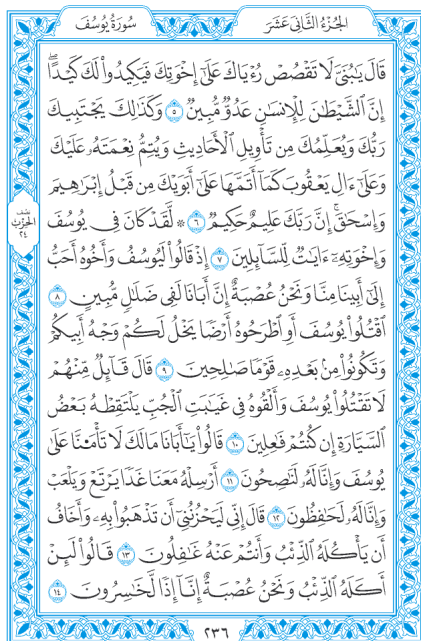 الجُزْءُ الثَّانِي عَشَرَ
سُورَةُ يُوسُفَ
قَالَ يَٰبُنَيَّ لَا تَقۡصُصۡ رُءۡيَاكَ عَلَىٰٓ إِخۡوَتِكَ فَيَكِيدُواْ لَكَ كَيۡدًاۖ
إِنَّ ٱلشَّيۡطَٰنَ لِلۡإِنسَٰنِ عَدُوّٞ مُّبِينٞ ٥ وَكَذَٰلِكَ يَجۡتَبِيكَ
رَبُّكَ وَيُعَلِّمُكَ مِن تَأۡوِيلِ ٱلۡأَحَادِيثِ وَيُتِمُّ نِعۡمَتَهُۥ عَلَيۡكَ
وَعَلَىٰٓ ءَالِ يَعۡقُوبَ كَمَآ أَتَمَّهَا عَلَىٰٓ أَبَوَيۡكَ مِن قَبۡلُ إِبۡرَٰهِيمَ
وَإِسۡحَٰقَۚ إِنَّ رَبَّكَ عَلِيمٌ حَكِيمٞ ٦ ۞ لَّقَدۡ كَانَ فِي يُوسُفَ
نِصْفُ
الحِزْبِ
٢٤
وَإِخۡوَتِهِۦٓ ءَايَٰتٞ لِّلسَّآئِلِينَ ٧ إِذۡ قَالُواْ لَيُوسُفُ وَأَخُوهُ أَحَبُّ
إِلَىٰٓ أَبِينَا مِنَّا وَنَحۡنُ عُصۡبَةٌ إِنَّ أَبَانَا لَفِي ضَلَٰلٖ مُّبِينٍ ٨
ٱقۡتُلُواْ يُوسُفَ أَوِ ٱطۡرَحُوهُ أَرۡضٗا يَخۡلُ لَكُمۡ وَجۡهُ أَبِيكُمۡ
وَتَكُونُواْ مِنۢ بَعۡدِهِۦ قَوۡمٗا صَٰلِحِينَ ٩ قَالَ قَآئِلٞ مِّنۡهُمۡ
لَا تَقۡتُلُواْ يُوسُفَ وَأَلۡقُوهُ فِي غَيَٰبَتِ ٱلۡجُبِّ يَلۡتَقِطۡهُ بَعۡضُ
ٱلسَّيَّارَةِ إِن كُنتُمۡ فَٰعِلِينَ ١٠ قَالُواْ يَٰٓأَبَانَا مَالَكَ لَا تَأۡمَ۬نَّا عَلَىٰ
يُوسُفَ وَإِنَّا لَهُۥ لَنَٰصِحُونَ ١١ أَرۡسِلۡهُ مَعَنَا غَدٗا يَرۡتَعۡ وَيَلۡعَبۡ
وَإِنَّا لَهُۥ لَحَٰفِظُونَ ١٢ قَالَ إِنِّي لَيَحۡزُنُنِيٓ أَن تَذۡهَبُواْ بِهِۦ وَأَخَافُ
أَن يَأۡكُلَهُ ٱلذِّئۡبُ وَأَنتُمۡ عَنۡهُ غَٰفِلُونَ ١٣ قَالُواْ لَئِنۡ
أَكَلَهُ ٱلذِّئۡبُ وَنَحۡنُ عُصۡبَةٌ إِنَّآ إِذٗا لَّخَٰسِرُونَ ١٤
٢٣٦